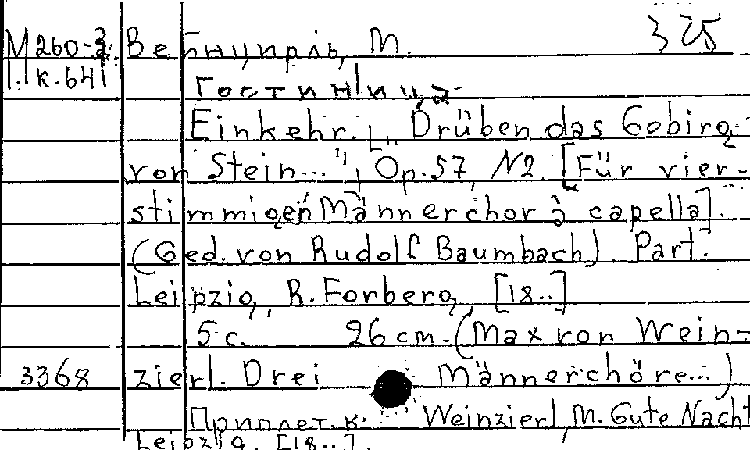 М260-3 Вейнцирль, М. 325
I.к.641
Гостиница.
Einkehr. „Drüben das Gebirg
von Stein...", Op.57, N2. [Für vier-
stimmigen Männerchor à capella].
(Ged. von Rudolf Baumbach). Part.
Leipzig, R. Forberg, [18..]
5 с. 26 cm. (Max von Wein-
3368 zierl. Drei Männerchöre...)
Приплет. к: Weinzierl, M. Gute Nacht
Leipzig. [18..].